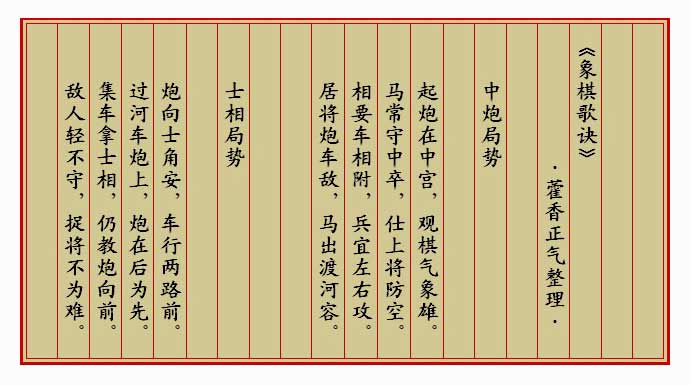 《象棋歌诀》
·藿香正气整理·
中炮局势
起炮在中宫，观棋气象雄。
马常守中卒，仕上将防空。
相要车相附，兵宜左右攻。
居将炮车敌，马出渡河容。
士相局势
炮向士角安，车行两路前。
过河车炮上，炮在后为先。
集车拿士相，仍教炮向前。
敌人轻不守，捉将不为难。